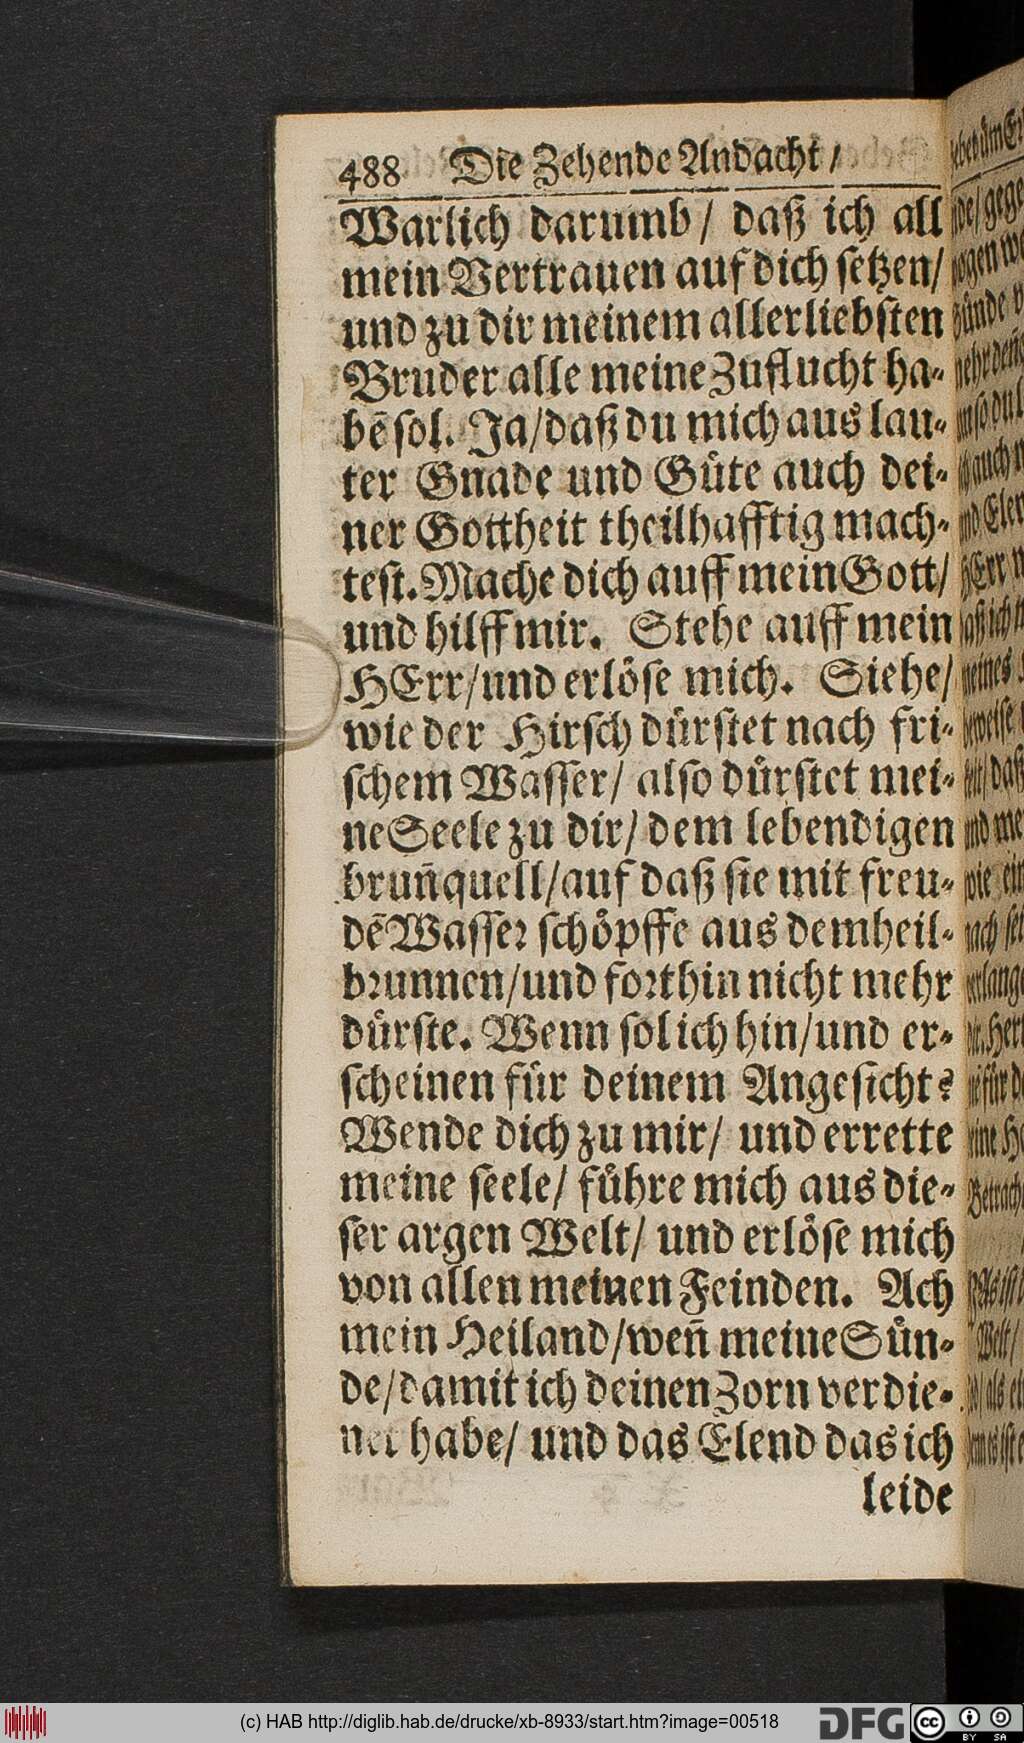 488 Die Zehende Andacht /
Warlich darumb / daß ich all
mein Vertrauen auf dich setzen /
und zu dir meinem allerliebsten
Bruder alle meine Zuflucht ha-
bē sol. Ja / daß du mich aus lau-
ter Gnade und Güte auch dei-
ner Gottheit theilhafftig mach-
test. Mache dich auff mein Gott /
und hilff mir. Stehe auff mein
HErr / und erlöse mich. Siehe /
wie der Hirsch dürstet nach fri-
schem Wasser / also dürstet mei-
ne Seele zu dir / dem lebendigen
brun̄quell / auf daß sie mit freu-
dē Wasser schöpffe aus dem heil-
brunnen / und forthin nicht mehr
dürste. Wenn sol ich hin / und er-
scheinen für deinem Angesicht?
Wende dich zu mir / und errette
meine seele / führe mich aus die-
ser argen Welt / und erlöse mich
von allen meinen Feinden. Ach
mein Heiland / wen̄ meine Sün-
de / damit ich deinen Zorn verdie-
net habe / und das Elend das ich
leide
(c) HAB http://diglib.hab.de/drucke/xb-8933/start.htm?image=00518
DFG
cc
BY SA